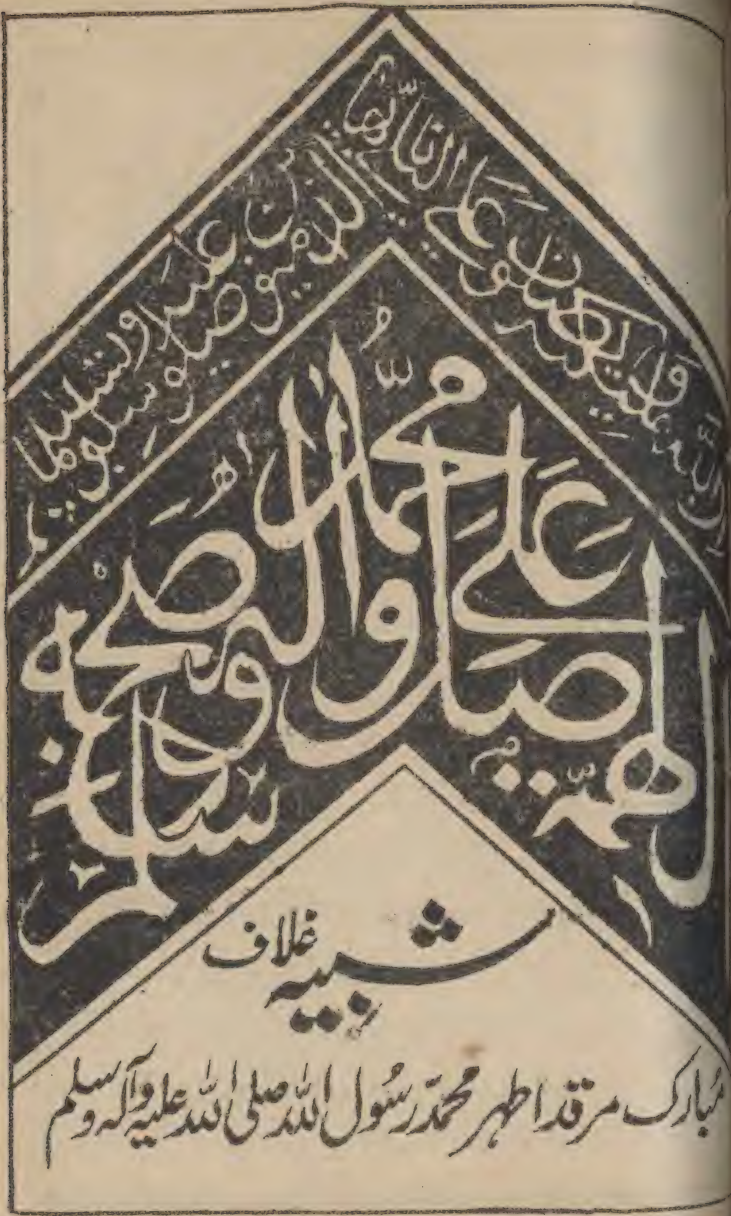 ان الله وملئكته يصلون على النبى يايها الذين امنوا صلوا عليه وسلموا تسليما
اللهم صل على محمد و اله وصحبه وسلم
شبیہ غلاف
مُبارک مرقد اطہر محمدّ رسُول اللہ صلی اللہ علیہ وآلہ وسلم